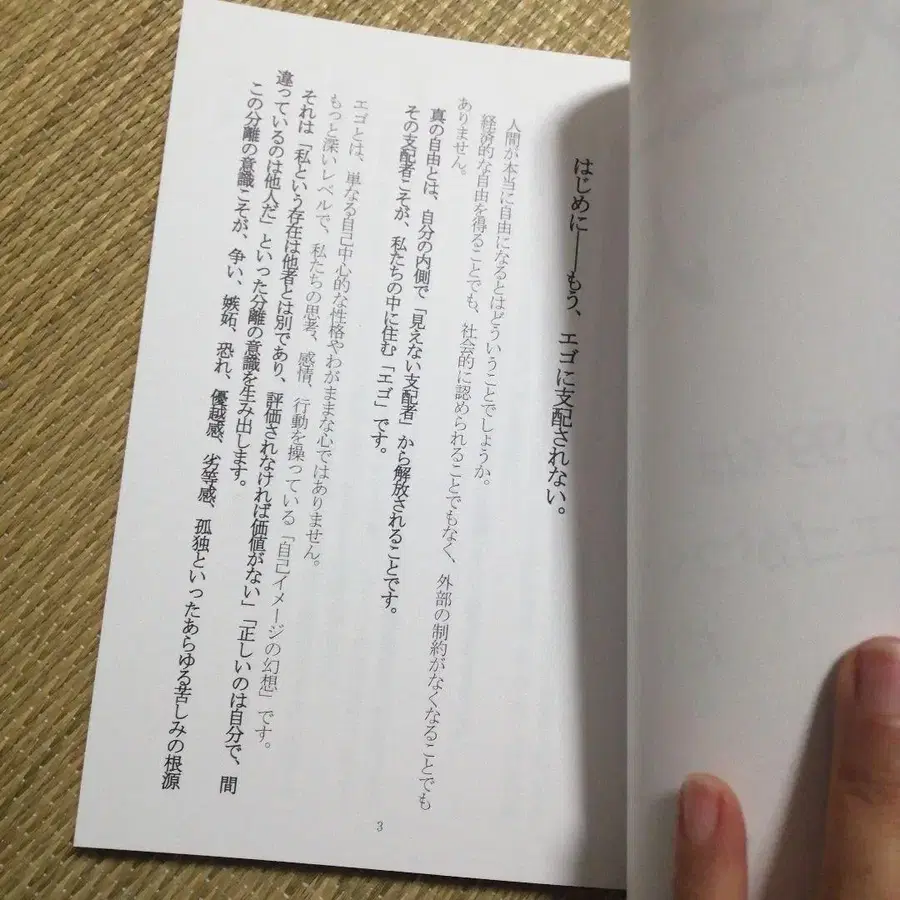 はじめに――もう、エゴに支配されない。
人間が本当に自由になるとはどういうことでしょうか。
経済的な自由を得ることでも、社会的に認められることでもなく、外部の制約がなくなることでも
ありません。
真の自由とは、自分の内側で「見えない支配者」から解放されることです。
その支配者こそが、私たちの中に住む「エゴ」です。
エゴとは、単なる自己中心的な性格やわがままな心ではありません。
もっと深いレベルで、私たちの思考、感情、行動を操っている「自己イメージの幻想」です。
それは「私という存在は他者とは別であり、評価されなければ価値がない」「正しいのは自分で、間
違っているのは他人だ」といった分離の意識を生み出します。
この分離の意識こそが、争い、嫉妬、恐れ、優越感、劣等感、孤独といったあらゆる苦しみの根源
3